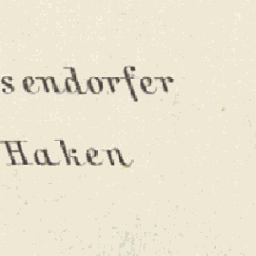 sendorfer
Haken